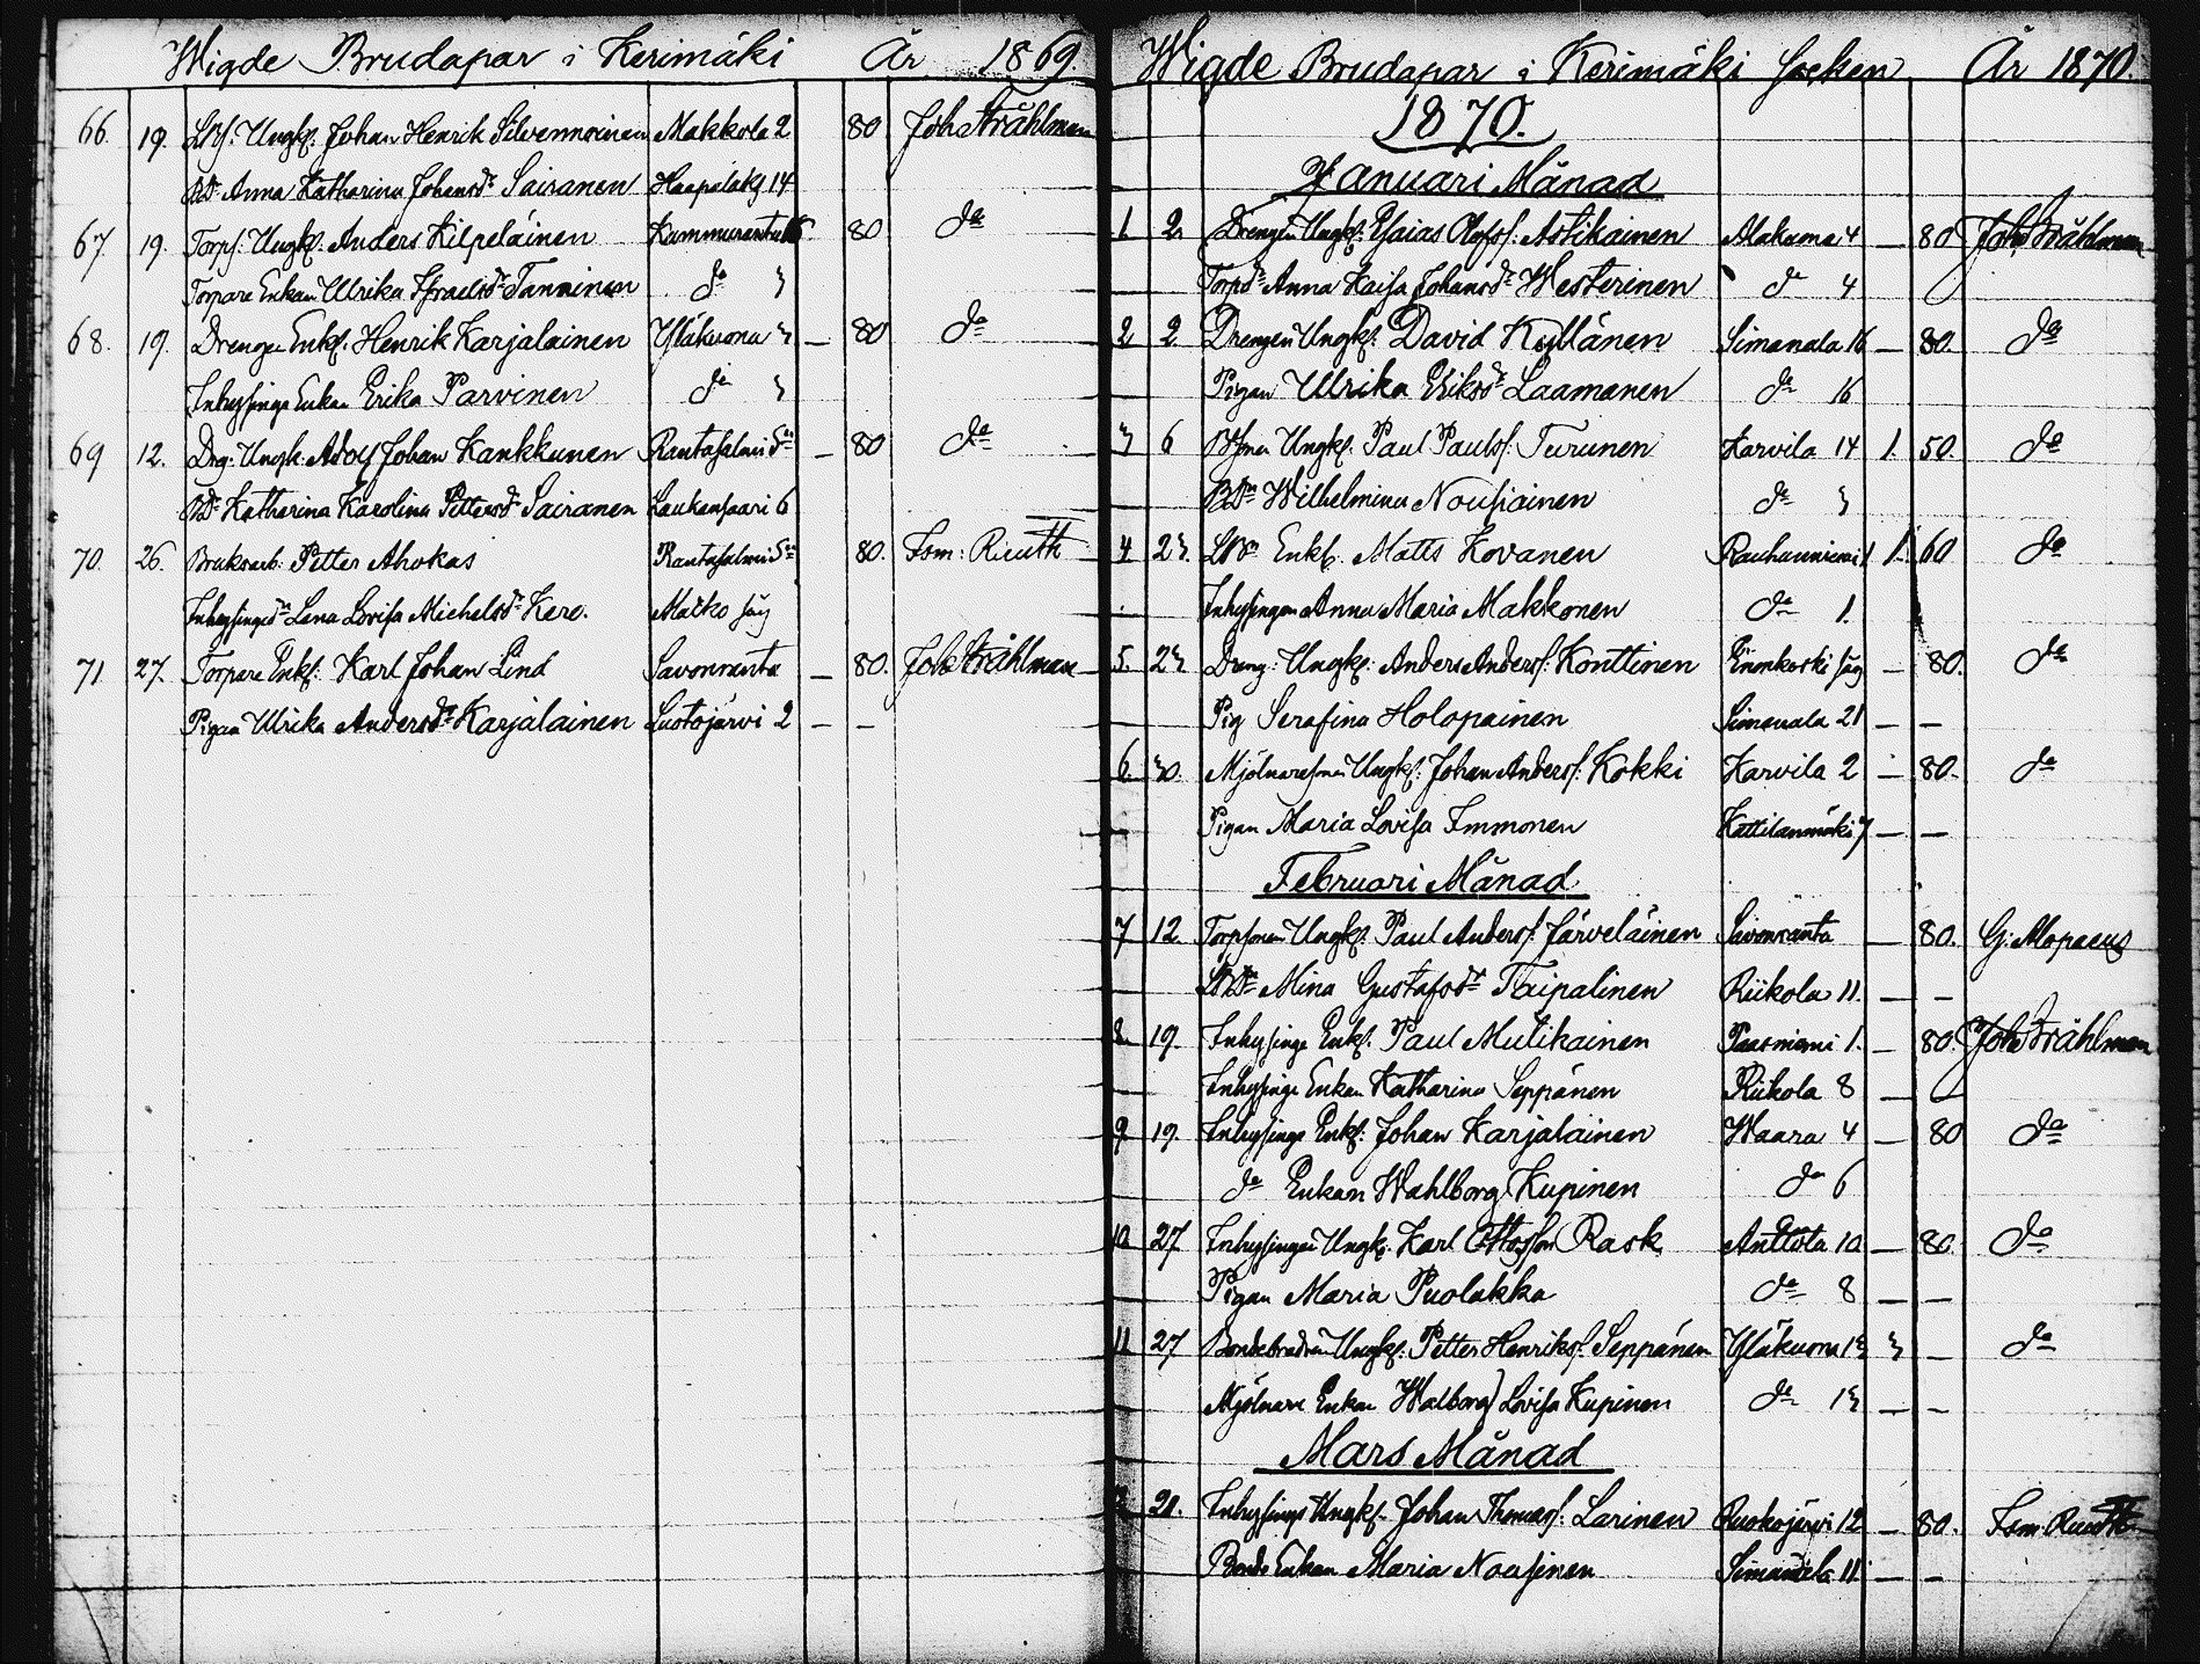 Wigde Brudapar i Kerimäki År 1869.
66. 19. LBS. Ungk. Johan Henrik Silvennoinen Makkola 2 80 Joh Stråhlman
BDr Anna Katharina Johansdr Sairanen Haapalaks 14
67. 19. Torps. Ungk. Anders Kilpeläinen 80 do
Torpare Enkan Ulrika Israelsdr Tanninen do 3
68. 19. Drengen Enkl. Henrik Karjalainen Yläkuona 3 — 80 do
Inhysinge Enkan Erika Parvinen do 3
69 12. Drg. Ungk. Adolf Johan Kankkunen Rantasalmi Sn — 80 do
BDr Katharina Karolina Pettersdr Sairanen Laukansaari 6
70. 26. Bruksarb. Petter Ahokas Rantasalmi Sn 80. Fsm: Ruuth
Inhysingedr Lena Lovisa Michelsdr Kere. Matko såg
71 27. Torpare Enkl: Karl Johan Lind Savonranta — 80. Joh Stråhlman
Pigan Ulrika Andersdr Karjalainen Luotojärvi 2 — —
Wigde Brudapar i Kerimäki Socken År 1870.
1870.
Januari Månad
1 2. Drengen Ungk. Esaias Olofss: Astikainen Alakuona 4 — 80 Joh Stråhlman
Torpdr Anna Kaisa Johansdr Westerinen do 4
2 2. Drengen Ungk: David Kyllänen Simanala 16 — 80. do
Pigan Ulrika Eriksdr Laamanen do 16
3 6 BSonen Ungk. Paul Pauls: Turunen Karvila 14 1. 50. do
BDn Wilhelmina Nousiainen do 3
4 23. LBn Enkl. Matts Kovanen Rauhaniemi 1 1. 60 do
Inhysingen Anna Maria Makkonen do 1.
5. 23 Dreng: Ungk: Anders Anders: Konttinen Enonkoski såg — 80. do
Pig Serafina Holopainen Simanala 21 — —
6. 30. Mjölnaresonen Ungk: Johan Anders: Kokki Karvila 2 — 80. do
Pigan Maria Lovisa Immonen Kattilanmäki 7 — —
Februari Månad
7 12. Torpsonen Ungk. Paul Anders: Järveläinen Savonranta — 80. G: Alopaeus
LBDr Mina Gustafsdr Taipalinen Riikola 11. — —
8. 19. Inhysinge Enkl. Paul Mutikainen Paasniemi 1. — 80. Joh Stråhlman
Inhysinge Enkan Katharina Seppänen Riikola 8 —
9 19. Inhysinge Enkl: Johan Karjalainen Waara 4 — 80 do
do Enkan Wahlborg Kupinen do 6
10 27 Inhysingen Ungk. Karl Ottosson Rask Anttola 10 — 80. do
Pigan Maria Puolakka do 8 — —
11 27 Bondebrodren Ungk: Petter Henriks: Seppänen Yläkuona 13 3 — do
Mjölnare Enkan Walborg Lovisa Kupinen do 13 — —
Mars Månad
20. Inhysings Ungk. Johan Thomas: Larinen Ruokojärvi 12 — 80. Fsm Ruuth
Bonde Enkan Maria Nousinen Simanala 11 — —